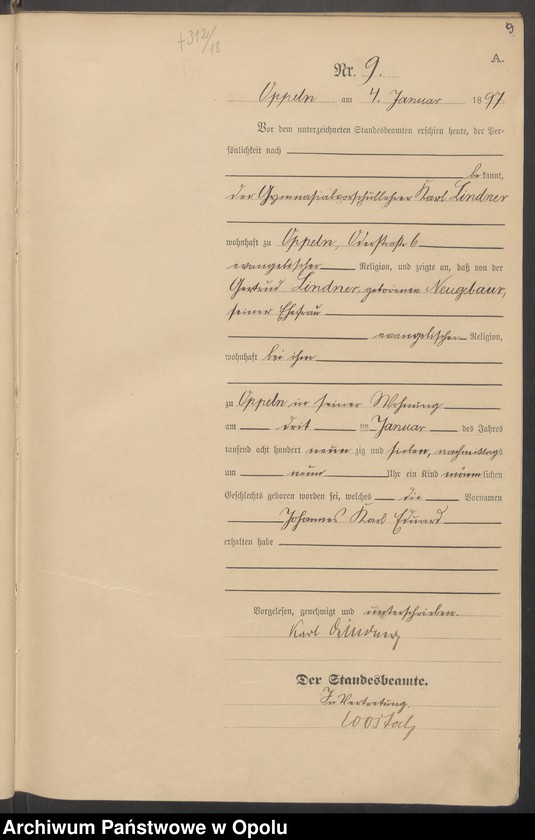 9
A.
Nr. 9.
Oppeln am 4. Januar 1897
Vor dem unterzeichneten Standesbeamten erschien heute, der Per-
sönlichkeit nach
bekannt,
der Gymnasialvorschullehrer Karl Lindner
wohnhaft zu Oppeln, Oderstraße 6
evangelischer Religion, und zeigte an, daß von der
Gertrud Lindner, geborenen Neugebaur,
seiner Ehefrau
evangelischen Religion,
wohnhaft bei ihm
zu Oppeln in seiner Wohnung
am dritten Januar des Jahres
tausend acht hundert neunzig und sieben, nachmittags
um neun Uhr ein Kind männlichen
Geschlechts geboren worden sei, welches die Vornamen
Johannes Karl Eduard
erhalten habe
Vorgelesen, genehmigt und unterschrieben.
Karl Lindner
Der Standesbeamte.
In Vertretung.
Archiwum Państwowe w Opolu